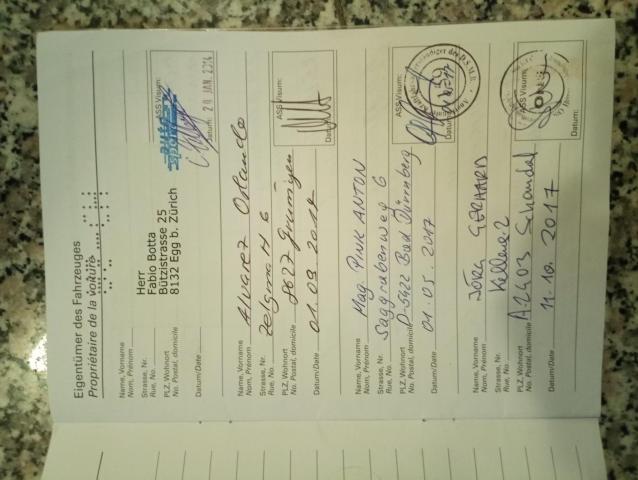 Eigentümer des Fahrzeuges
Propriétaire de la voiture
Name, Vorname
Nom, Prénom
Herr
Fabio Botta
Strasse, Nr.
Rue, No.
Bützistrasse 25
PLZ, Wohnort
No. Postal, domicile
8132 Egg b. Zürich
Datum/Date
ASS Visum:
Datum: 20. JAN. 2014
Name, Vorname
Nom, Prénom
Alvarez Orlando
Strasse, Nr.
Rue, No.
6
PLZ, Wohnort
No. Postal, domicile
8627 Grüningen
Datum/Date
ASS Visum:
Name, Vorname
Nom, Prénom
Mag PINK ANTON
Strasse, Nr.
Rue, No.
6
PLZ, Wohnort
No. Postal, domicile
Bad Dürrnberg
Datum/Date
01.05.2017
ASS Visum:
Name, Vorname
Nom, Prénom
JÖRG GERHARD
Strasse, Nr.
Rue, No.
PLZ, Wohnort
No. Postal, domicile
Datum/Date
11.10.2017
ASS Visum:
Datum: